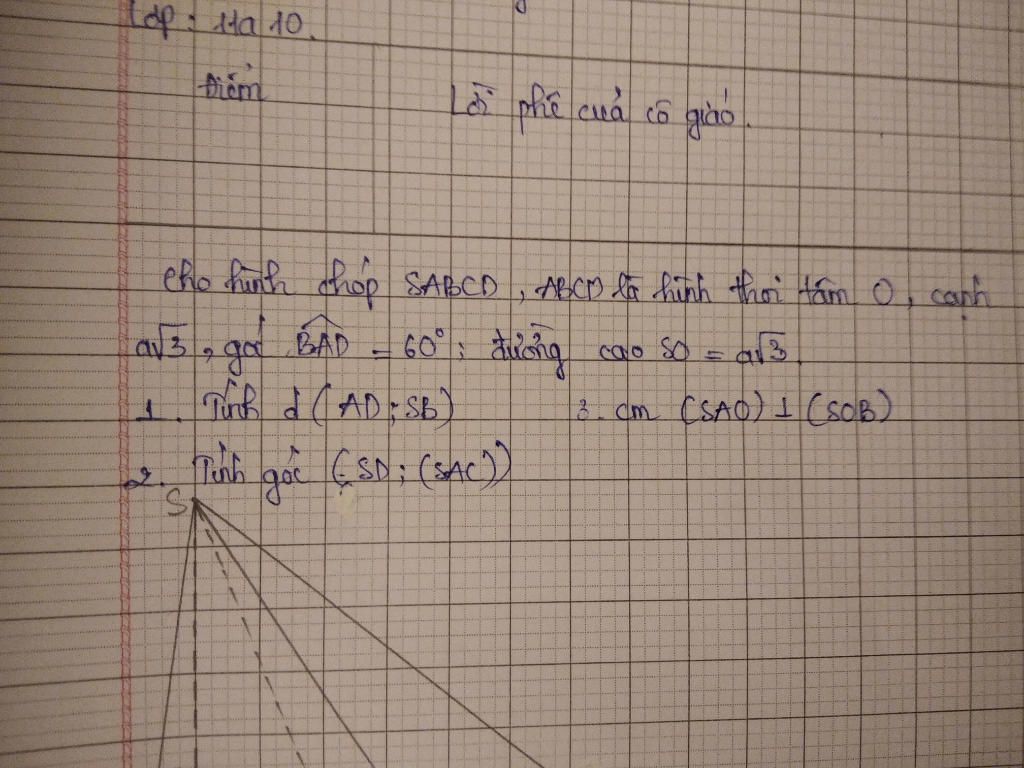 Lớp : 11a 10.
Điểm
Lời phê cuả cô giáo.
Cho hình chóp SABCD, ABCD là hình thoi tâm O, cạnh
a√3, góc BAD = 60° ; đường cao SO = a√3.
1. Tính d (AD; SB) 3. cm (SAO) ⊥ (SOB)
2. Tính góc (SD; (SAC))
S